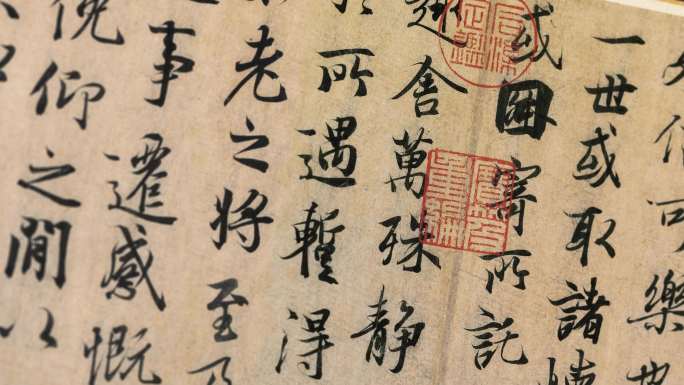 信可樂也
一世或取諸懷
或因寄所託
趣舍萬殊静
於所遇暫得
老之將至及
事遷感慨
俛仰之閒以